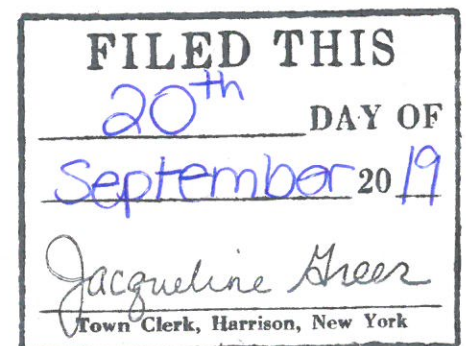 FILED THIS
20th DAY OF
September 20 19
Jacqueline Greer
Town Clerk, Harrison, New York